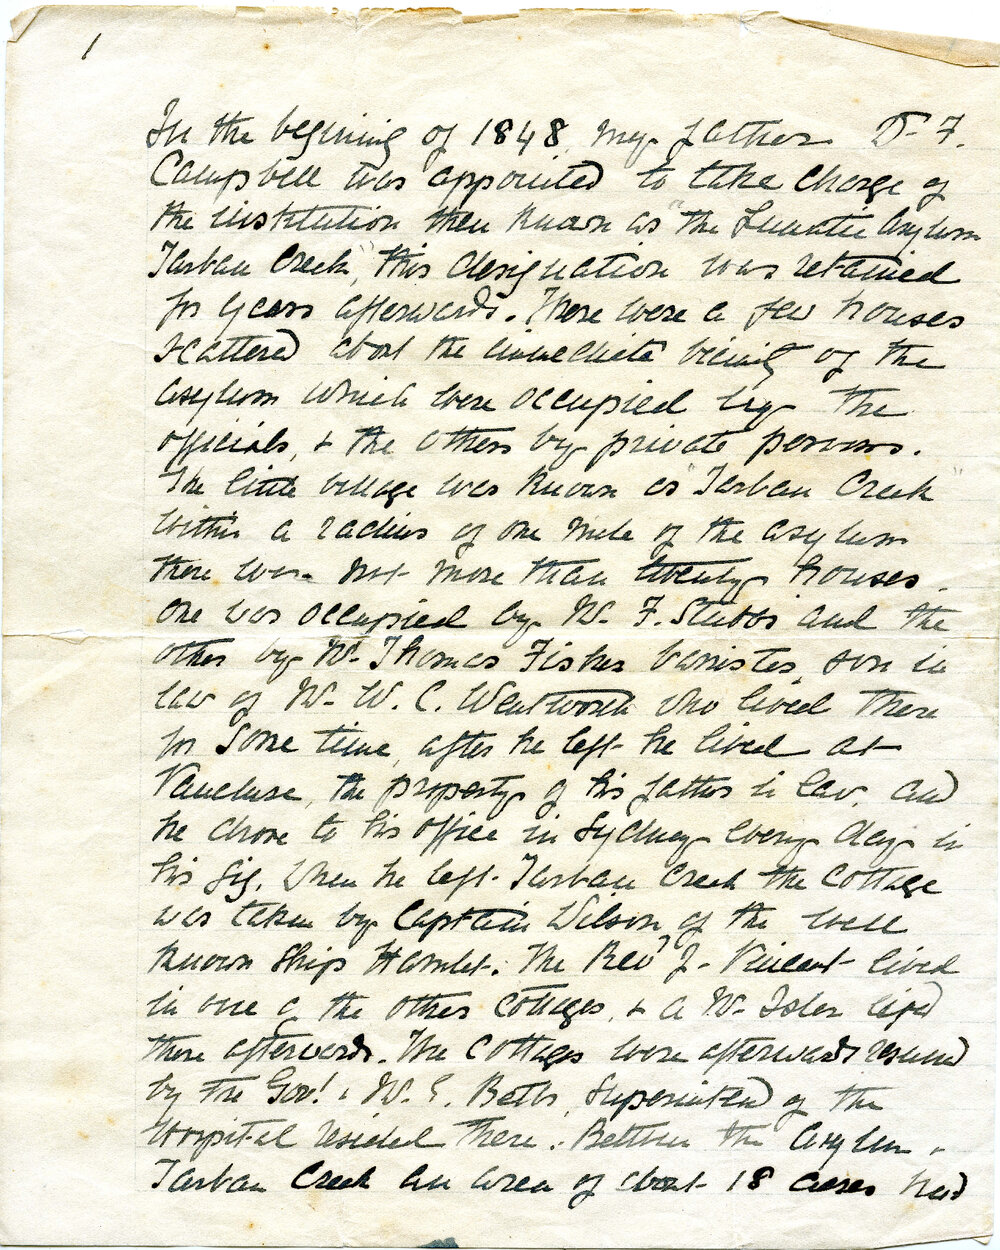 1
In the begining of 1848, my father D- F.
Campbell was appointed to take charge of
the institution then known as "the Lunatic Asylum
Tarban Creek", this designation was retained
for years afterwards. There were a few houses
scattered about the immediate vicinity of the
asylum which were occupied by the
officials, & the others by private persons.
The little village was known as "Tarban Creek"
within a radius of one mile of the asylum
there was not more than twenty houses.
One was occupied by Mr. F. Stubbs and the
other by Mr. Thomas Fisher barrister, son in
law of Mr. W. C. Wentworth who lived there
for some time, after he left he lived at
Vaucluse, the property of his father in law, and
he drove to his office in Sydney every day in
his gig. When he left Tarban Creek the cottage
was taken by Captain Wilson of the well
known ship Hamlet. The Revd J- Vincent lived
in one of the other cottages, & a Mr. lived
there afterwards. The cottages were afterwards resumed
by the Gov! & Mr. E. Betts, Superintend of the
Hospital resided there. Between the asylum &
Tarban Creek an area of about 18 acres had